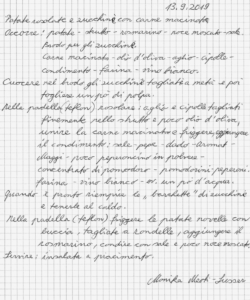 13.9.2018
Patate novelle e zucchine con carne macinata
Occorre: patate - strutto - romarino - noce moscato - sale.
brodo per gli zucchini
carne macinata - olio d'oliva - aglio - cipolla -
condimento - farina - vino bianco.
Cuocere nel brodo gli zucchini tagliati a metà e poi
togliere un pò di polpa.
Nella padella (teflon) rosolare: aglio e cipolla tagliati
finemente nello strutto e poco olio d'oliva,
unire la carne macinata e friggere, aggiungere
il condimento: sale - pepe - dado - aromat -
Maggi - poco peperoncino in polvere -
concentrato di pomodoro - pomodorini - peperoni -
farina - vino bianco - ev. un po d'acqua.
Quando è pronto riempire le "barchette" di zucchine
e tenerle al caldo.
Nella padella (teflon) friggere le patate novelle con
buccia, tagliate a rondelle, aggiungere il
rosmarino, condire con sale e poco noce moscato
Servire: insalata a piacimento.
Monika